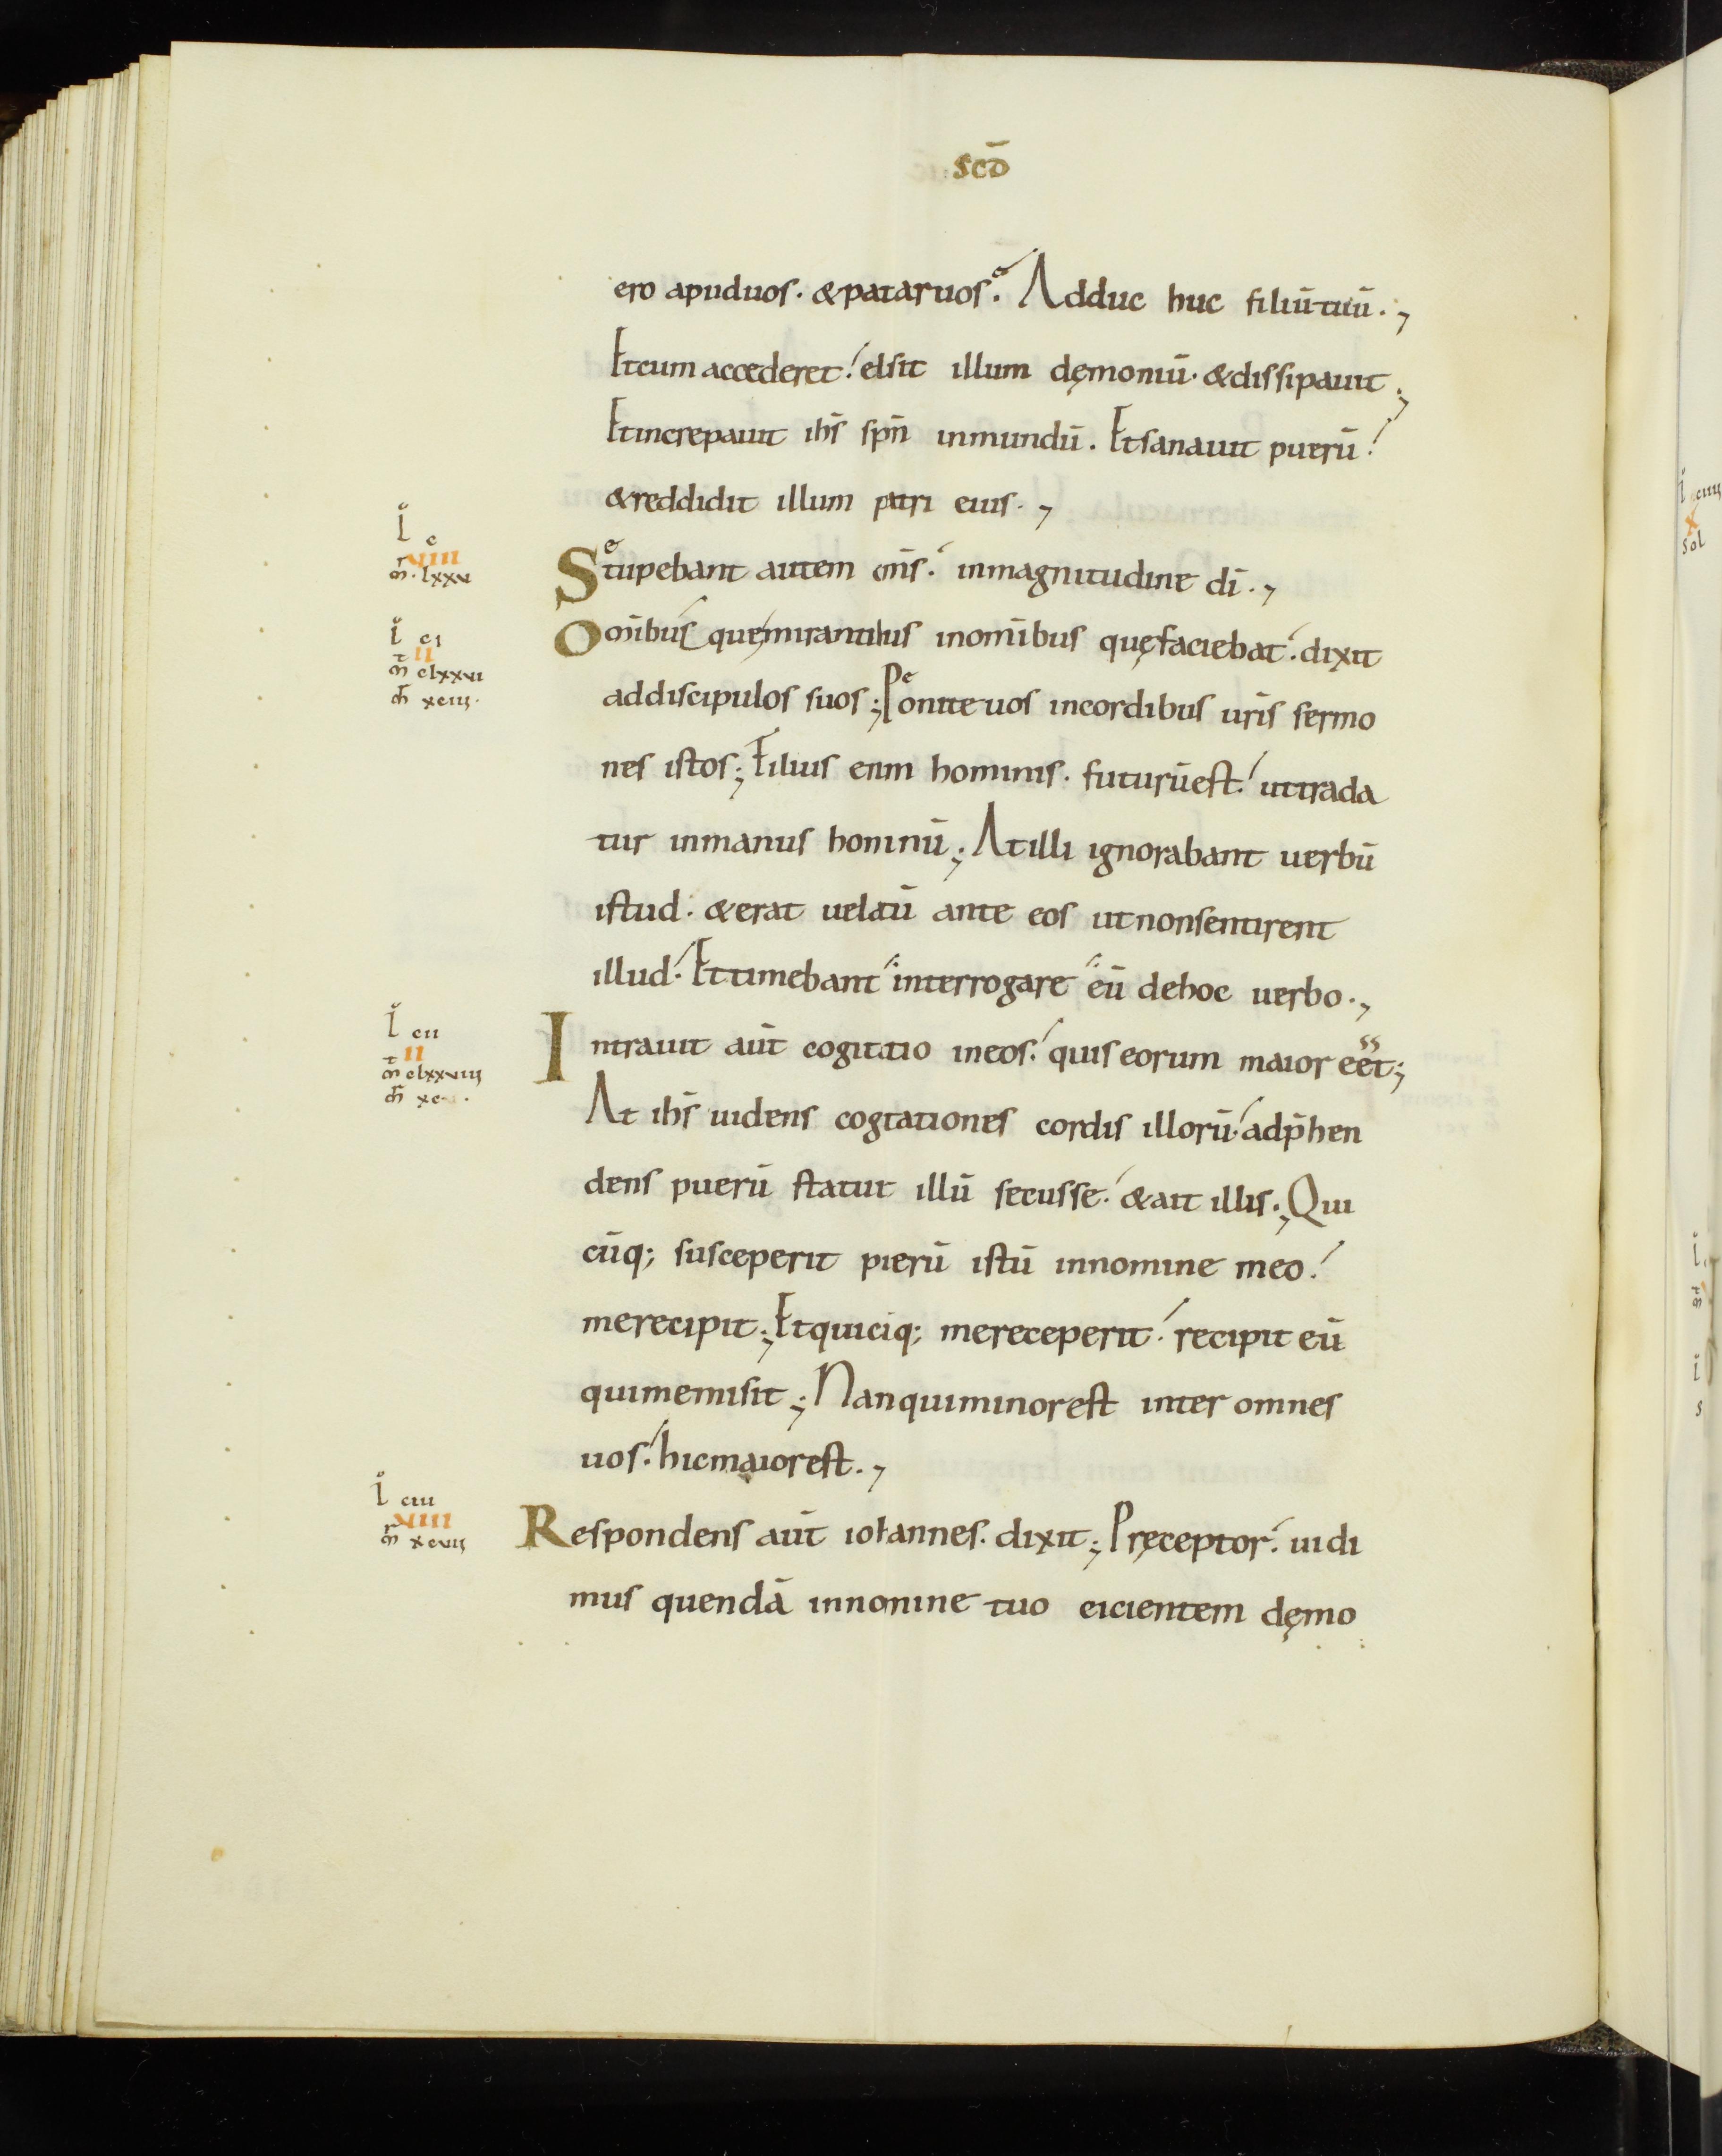 scd̄
ero apud uos. & patar uos. Adduc huc filiū tuū.,
Et cum accederet. elsit illum dęmoniū. & dissipauit.,
Et increpauit ihs̄ spm̄ inmundū. Et sanauit puerū.
& reddidit illum patri eius.,
l c
VIII
m̄. lxxv
Stupebant autem om̄s. in magnitudine dī.,
l ci
II
m clxxvi
m̄ xciii.
Omībus quę mirantibus in omībus quę faciebat. dixit
ad discipulos suos; Ponite uos in cordibus ur̄is sermo
nes istos; Filius enim hominis. futurū est. ut trada
tur in manus hominū; At illi ignorabant uerbū
istud. & erat uelatū ante eos ut non sentirent
illud. Et timebant interrogare eū de hoc uerbo.,
l cii
II
m clxxviiii
Intrauit aūt cogitatio in eos. quis eorum maior eet;
ss
At ihs̄ uidens cogitationes cordis illorū. adp̄hen
dens puerū statuit illū secus se. & ait illis.; Qui
cūq; susceperit puerū istū in nomine meo.
me recipit; Et quicūq; me receperit. recipit eū
qui me misit; Nam qui minor est inter omnes
uos. hic maior est.,
l ciii
VIIII
m̄ xcvii
Respondens aūt iohannes. dixit; Pręceptor. uidi
mus quendā in nomine tuo eicientem dęmo